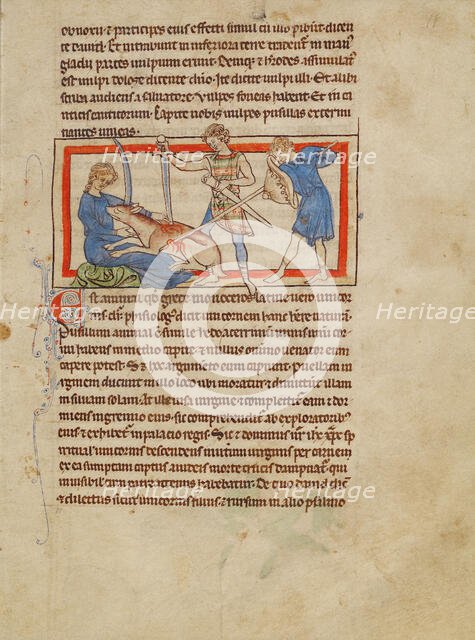 obnoxii & participes eius effecti simul cu illo pibunt. dicen
te dauid. Et intrabunt in inferiora terre tradent in man
gladii partes uulpium erunt. Deniq & herodes assimulat
est uulpi dologe dicente dno. Ite dicite uulpi illi. Et alibi
scriba audiens a saluatore. Uulpes foueas habent. Et in
canticis canticorum. Capite nobis uulpes pusillas extermi
nantes uineas.
Est animal qd grece monoceros latine uero unicor
nis dr. Physiolog dicit unicornem hanc here naturam.
Pusillum animal & simile hedo acerrimu nimis unu cor
nu habens in medio capite & nullus omnino uenator eum
capere potest. Sed hoc argumento eum capiunt. Puellam uir
ginem ducunt in illo loco ubi moratur & dimittunt illam
in siluam solam. At ille uisa uirgine complectitur eam & dor
miens in gremio eius. sic comprehenditur ab exploratorib
eius & exhibetur in palacio regis. Sic & dominus nr ihc xpc sp
ritualis unicornis descendens in uterum uirginis per carnem
ex ea sumptam captus a iudeis morte crucis dampnatus qui
inuisibilis cum patre actenus habebatur. De quo dauid
& dilectus sicut filius unicornium. & rursum in alio psalmo
Heritage
Heritage
Heritage
Heritage
Heritage
Heritage
Heritage
Heritage